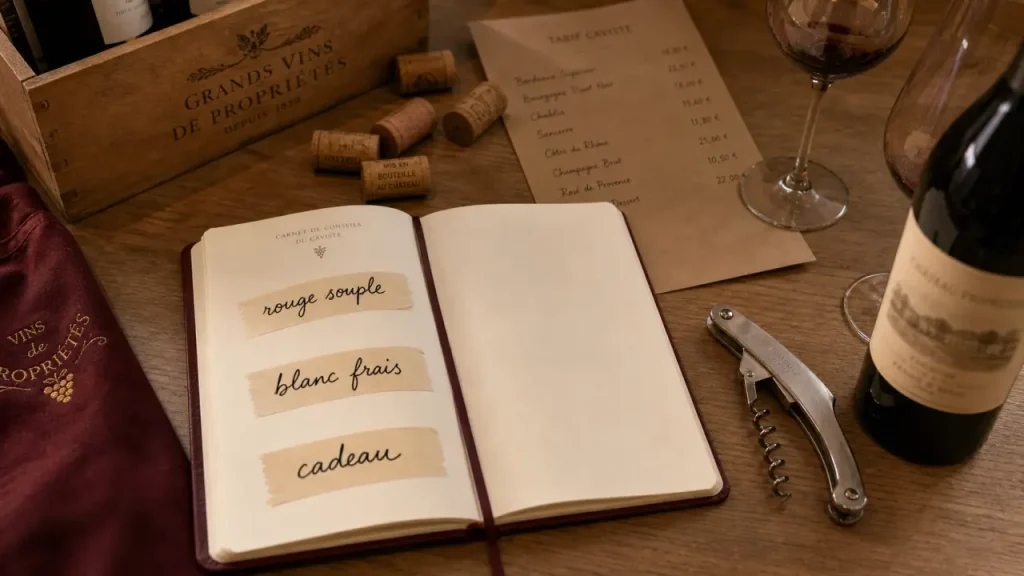 GRANDS VINS
DE PROPRIÉTÉS
DEPUIS
MIS EN
BOUTEILLE
AU CHÂTEAU
TARIF CAVISTE
Bordeaux Supérieur
Bourgogne Pinot Noir
22,50 €
Chablis
Sancerre
17,80 €
Côtes du Rhône
Champagne Brut
10,50 €
Rosé de Provence
22,00
CARNET DE CONSEILS
DU CAVISTE
rouge souple
blanc frais
cadeau
VINS
de
PROPRIÉTÉS